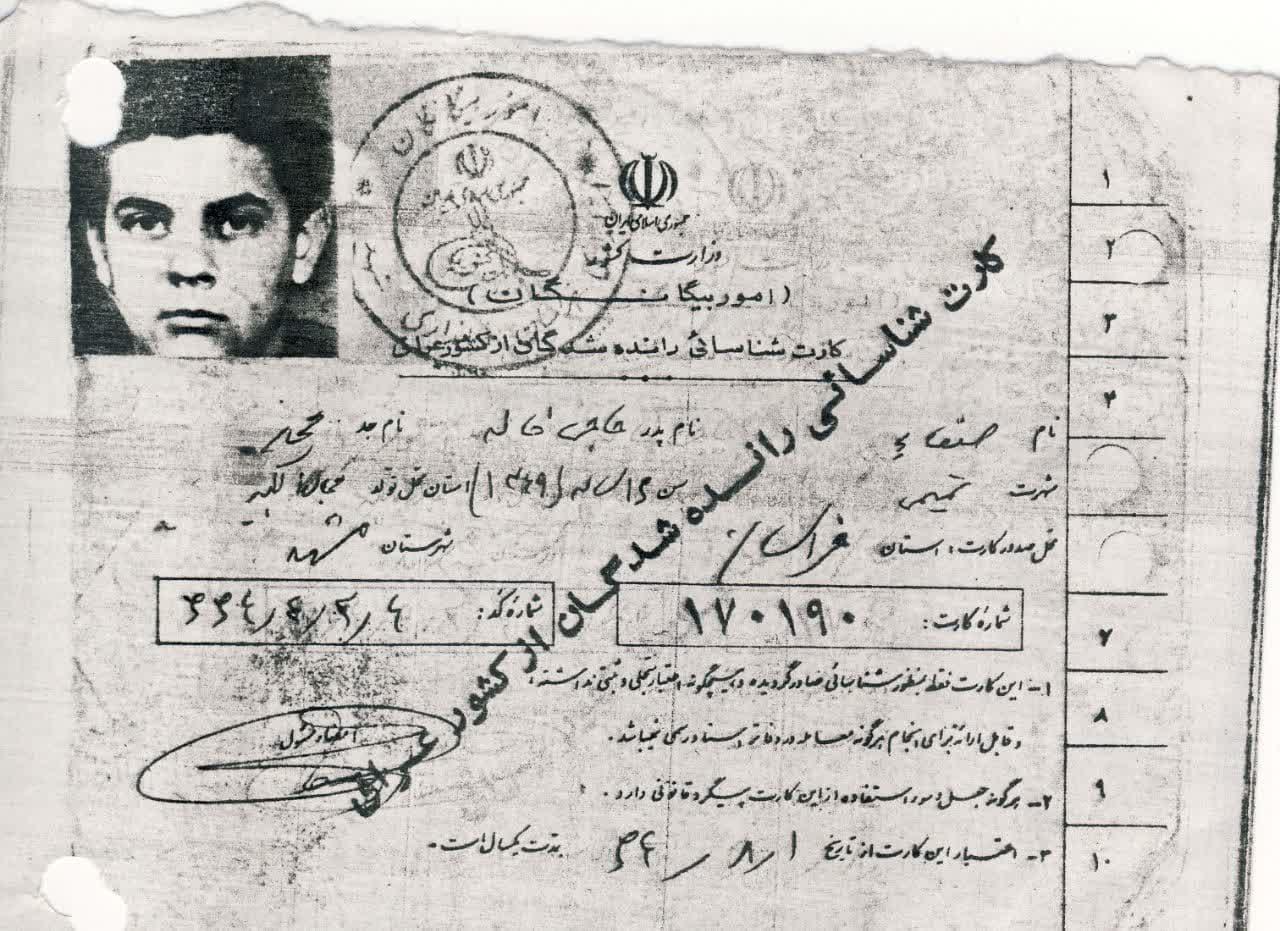 امور بیگانگان
جمهوری اسلامی ایران
وزارت کشور
(امور بیگانگان)
کارت شناسائی رانده شدگان از کشور عراق
کارت شناسائی رانده شدگان از کشور عراق
نام نام پدر حاجی نام جد
شهرت تمیمی سن ۱۶ ساله (۱۳۴۹) استان محل تولد
محل صدور کارت: استان خراسان شهرستان مشهد
شماره کارت: ۱۷۰۱۹۰ شماره کد:
۱ـ این کارت فقط بمنظور شناسائی صادر گردیده و هیچگونه امتیاز تملکی و ثبتی نداشته
و قابل ارائه برای انجام هرگونه معامله در دفاتر اسناد رسمی نمیباشد.
۲ـ هرگونه جعل و سوء استفاده از این کارت پیگرد قانونی دارد.
۳ـ اعتبار این کارت از تاریخ ۱/۸/۶۴ بمدت یکسال است.
امضاء مسئول
۱
۲
۳
۴
۷
۸
۹
۱۰